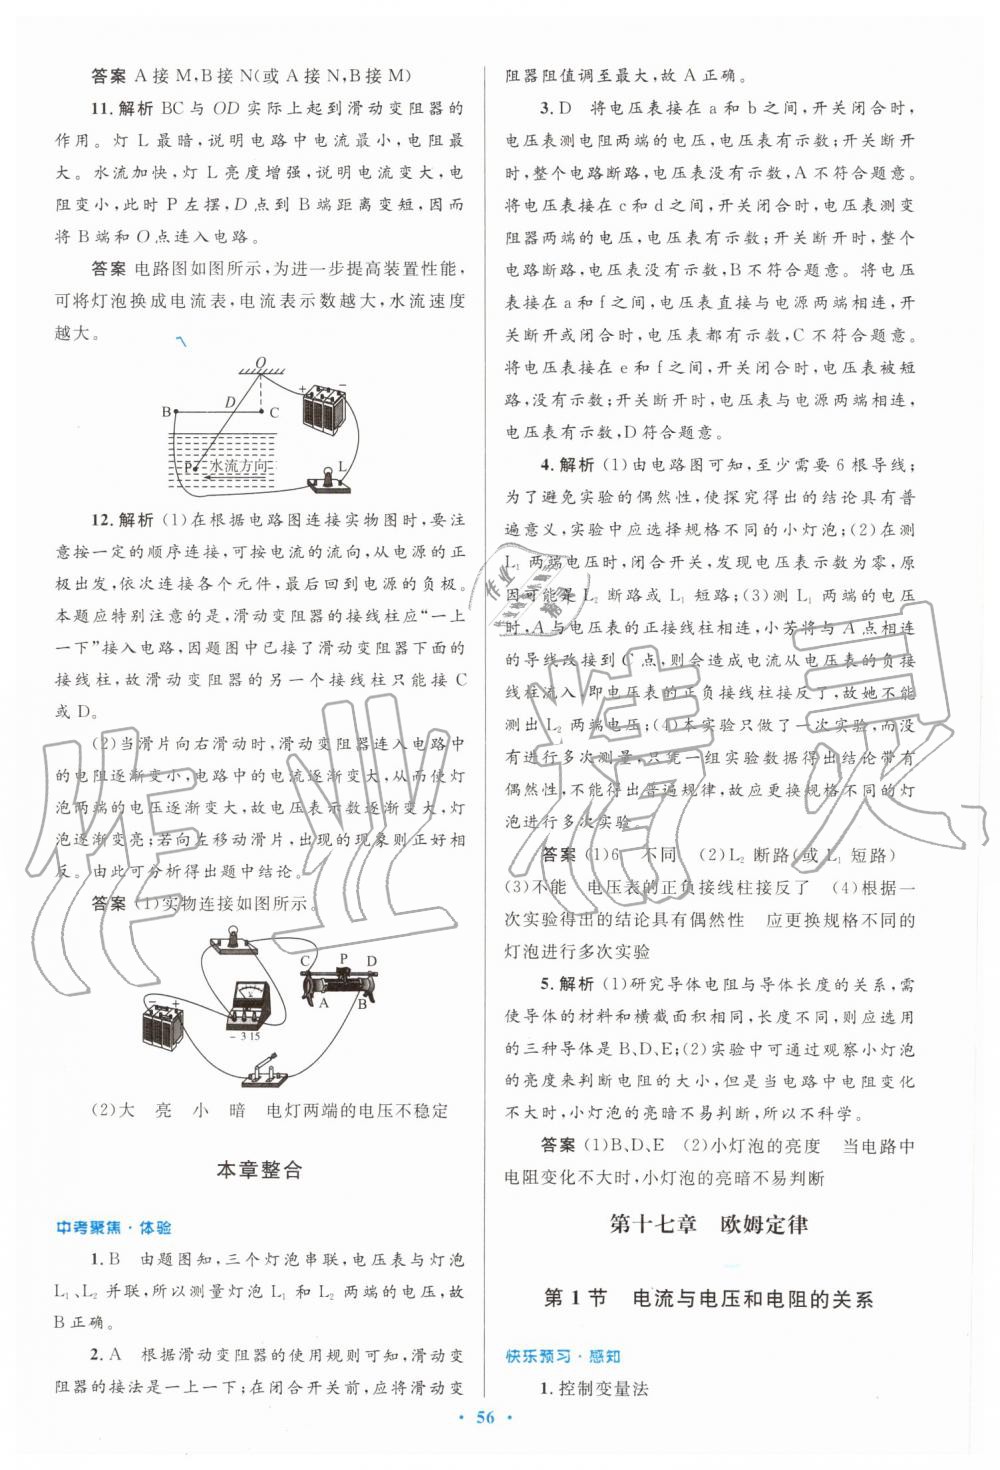 答案 A接M,B接N(或A接N,B接M)
11.解析 BC与OD实际上起到滑动变阻器的
作用。灯L最暗,说明电路中电流最小,电阻最
大。水流加快,灯L亮度增强,说明电流变大,电
阻变小,此时P左摆,D点到B端距离变短,因而
将B端和O点连入电路。
答案 电路图如图所示,为进一步提高装置性能,
可将灯泡换成电流表,电流表示数越大,水流速度
越大。
O
B D C + -
P 水流方向 L
12.解析 (1)在根据电路图连接实物图时,要注
意按一定的顺序连接,可按电流的流向,从电源的正
极出发,依次连接各个元件,最后回到电源的负极。
本题应特别注意的是,滑动变阻器的接线柱应“一上
一下”接入电路,因题图中已接了滑动变阻器下面的
接线柱,故滑动变阻器的另一接线柱只能接C
或D。
(2)当滑片向右滑动时,滑动变阻器连入电路中
的电阻逐渐变小,电路中的电流逐渐变大,从而使灯
泡两端的电压逐渐变大,故电压表示数逐渐变大,灯
泡逐渐变亮;若向左移动滑片,出现的现象则正好相
反。由此可分析得出题中结论。
答案 (1)实物连接如图所示。
C P D
A B
- +
- 3 15
(2)大 亮 小 暗 电灯两端的电压不稳定
本章整合
中考聚焦·体验
1.B 由题图知,三个灯泡串联,电压表与灯泡
L₁、L₂并联,所以测量灯泡L₁和L₂两端的电压,故
B正确。
2.A 根据滑动变阻器的使用规则可知,滑动变
阻器的接法是一上一下;在闭合开关前,应将滑动变
阻器阻值调至最大,故A正确。
3.D 将电压表接在a和b之间,开关闭合时,
电压表测电阻两端的电压,电压表有示数;开关断开
时,整个电路断路,电压表没有示数,A不符合题意。
将电压表接在c和d之间,开关闭合时,电压表测变
阻器两端的电压,电压表有示数;开关断开时,整个
电路断路,电压表没有示数,B不符合题意。将电压
表接在a和f之间时,电压表直接与电源两端相连,开
关断开或闭合时,电压表都有示数,C不符合题意。
将电压表接在e和f之间,开关闭合时,电压表被短
路,没有示数;开关断开时,电压表与电源两端相连,
电压表有示数,D符合题意。
4.解析 (1)由电路图可知,至少需要6根导线;
为了避免实验的偶然性,使探究得出的结论具有普
遍意义,实验中应选择规格不同的小灯泡;(2)在测
L₁两端电压时,闭合开关,发现电压表示数为零,原
因可能是L₂断路或L₁短路;(3)测L₁两端的电压
时,A与电压表的正接线柱相连,小芳将与A点相连
的导线改接到C点,则会造成电流从电压表的负接
线柱流入,即电压表的正负接线柱接反了,故她不能
测出L₂两端电压;(4)本实验只做了一次实验,而没
有进行多次测量,只凭一组实验数据得出结论带有
偶然性,不能得出普遍规律,故应更换规格不同的灯
泡进行多次实验。
答案 (1)6 不同 (2)L₂断路(或L₁短路)
(3)不能 电压表的正负接线柱接反了 (4)根据一
次实验得出的结论具有偶然性 应更换规格不同的
灯泡进行多次实验
5.解析 (1)研究导体电阻与导体长度的关系,需
使导体的材料和横截面积相同,长度不同,则应选用
的三种导体是B、D、E;(2)实验中可通过观察小灯泡
的亮度来判断电阻的大小,但是当电路中电阻变化
不大时,小灯泡的亮暗不易判断,所以不科学。
答案 (1)B、D、E (2)小灯泡的亮度 当电路中
电阻变化不大时,小灯泡的亮暗不易判断
第十七章 欧姆定律
第1节 电流与电压和电阻的关系
快乐预习·感知
1.控制变量法
· 56 ·
作业精灵